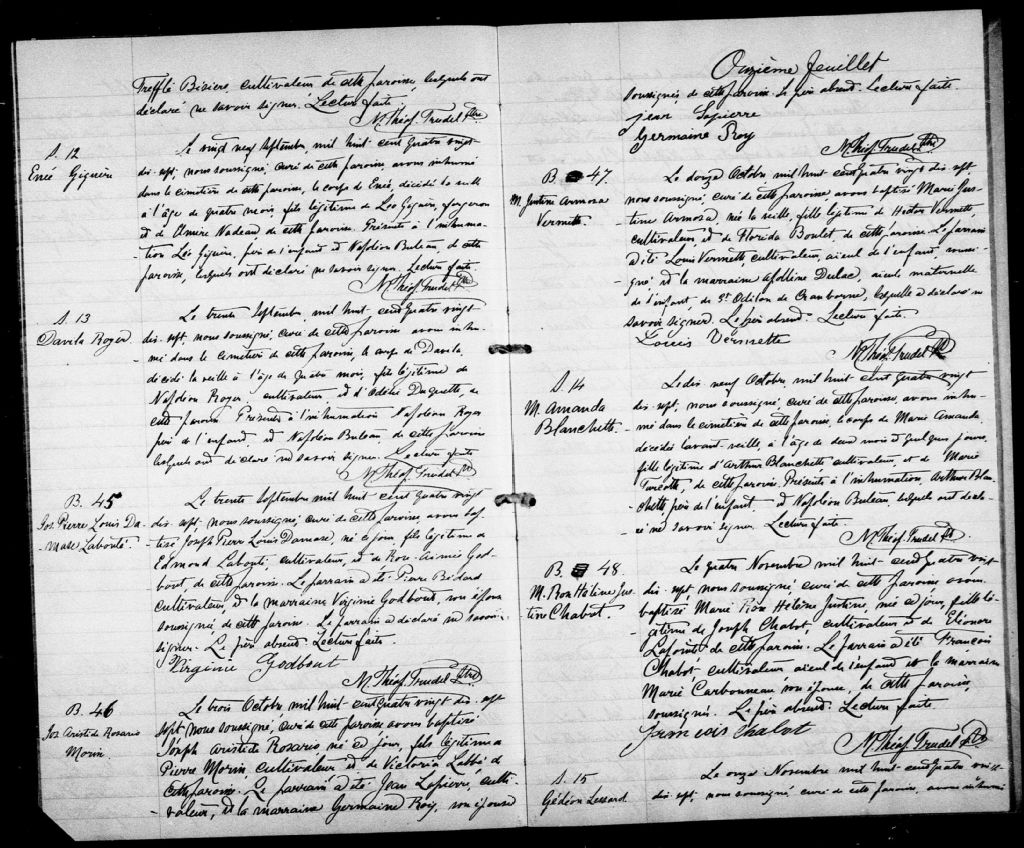 Trefflé Béziers, cultivateur de cette paroisse, lesquels ont
déclaré ne savoir signer. Lecture faite
N. Théop. Trudel Ptre
S. 12
Enée Giguère
Le vingt neuf septembre, mil huit cent quatre vingt
dix-sept, nous soussigné, curé de cette paroisse, avons inhumé
dans le cimetière de cette paroisse, le corps de Enée, décédé la veille
à l'âge de quatre mois, fils légitime de Léo Giguère, forgeron
et de Amire Nadeau de cette paroisse. Présents à l'inhuma-
-tion Léo Giguère, père de l'enfant et Napoléon Buteau, de cette
paroisse, lesquels ont déclaré ne savoir signer. Lecture faite.
N. Théop. Trudel Ptre
S. 13
Davila Roger
Le trente Septembre, mil huit cent quatre vingt
dix-sept, nous soussigné, curé de cette paroisse avons inhu-
mé dans le cimetière de cette paroisse, le corps de Davila,
décédé la veille à l'âge de quatre mois, fils légitime de
Napoléon Roger, cultivateur, et d'Odélie Duquette, de
cette paroisse. Présents à l'inhumation Napoléon Roger
père de l'enfant, et Napoléon Buteau, de cette paroisse
lesquels ont déclaré ne savoir signer. Lecture faite
N. Théop. Trudel Ptre
B. 45
Jos. Pierre Louis Da-
-mase Labonté.
Le trente Septembre mil huit cent quatre vingt
dix-sept, nous soussigné curé de cette paroisse avons bap-
tisé Joseph Pierre Louis Damase, né ce jour, fils légitime d
Edmond Labonté, cultivateur, et de Rose-Aimée God-
bout de cette paroisse. Le parrain a été Pierre Bédard
cultivateur, et la marraine Virginie Godbout, son épouse
soussigné de cette paroisse. Le parrain a déclaré ne savoir
signer. Le père absent. Lecture faite
Virginie Godbout
N. Théop. Trudel Ptre
B. 46
Jos Aristide Rosario
Morin.
Le trois Octobre, mil huit cent quatre vingt dix-sept
sept nous soussigné, curé de cette paroisse avons baptisé
Joseph Aristide Rosario né ce jour, fils légitime de
Pierre Morin, cultivateur et de Victoria Labbé de
cette paroisse. Le parrain a été Jean Lapierre, culti-
-vateur, et la marraine Germaine Roy, son épouse
Onzième feuillet
soussignés, de cette paroisse. Le père absent. Lecture faite.
Jean Lapierre
Germaine Roy
N. Théop. Trudel Ptre
B. 47.
M. Justine Armosa
Vermette.
Le douze Octobre, mil huit cent quatre vingt dix sept,
nous soussigné, curé de cette paroisse avons baptisé Marie Jus-
tine Armosa, née la veille, fille légitime de Hector Vermette,
cultivateur, et de Florida Boulet, de cette paroisse. Le parrain
a été Louis Vermette, cultivateur, aïeul de l'enfant, soussi-
-gné et la marraine Apolline Dulac, aïeule maternelle
de l'enfant, de St Odilon de Cranborne, laquelle a déclaré ne
savoir signer. Le père absent. Lecture faite.
Louis Vermette
N. Théop. Trudel Ptre
S. 14
M. Amanda
Blanchette.
Le dix neuf Octobre, mil huit cent quatre vingt
dix-sept, nous soussigné, curé de cette paroisse, avons inhu-
-mé dans le cimetière de cette paroisse, le corps de Marie Amanda
décédée l'avant veille, à l'âge de deux mois et quelques jours,
fille légitime d'Arthur Blanchette cultivateur, et de Marie
Turcotte, de cette paroisse. Présents à l'inhumation, Arthur Blan-
-chette, père de l'enfant, et Napoléon Buteau, lesquels ont décla-
-ré ne savoir signer. Lecture faite.
N. Théop. Trudel Ptre.
B. 48.
M. Rose Hélène Jus-
tine Chabot.
Le quatre Novembre, mil huit cent quatre vingt
dix-sept, nous soussigné, curé de cette paroisse avons
baptisé Marie Rose Hélène Justine, née ce jour, fille lé-
gitime de Joseph Chabot, cultivateur et de Eléonore
Lapointe de cette paroisse. Le parrain a été François
Chabot, cultivateur aïeul de l'enfant et la marraine
Marie Carbonneau son épouse, de cette paroisse,
soussignés. Le père absent. Lecture faite
francois Chabot
N. Théop. Trudel Ptre
S. 15
Gédéon Lessard.
Le onze Novembre mil huit cent quatre vingt
dix-sept, nous soussigné curé de cette paroisse, avons inhumé